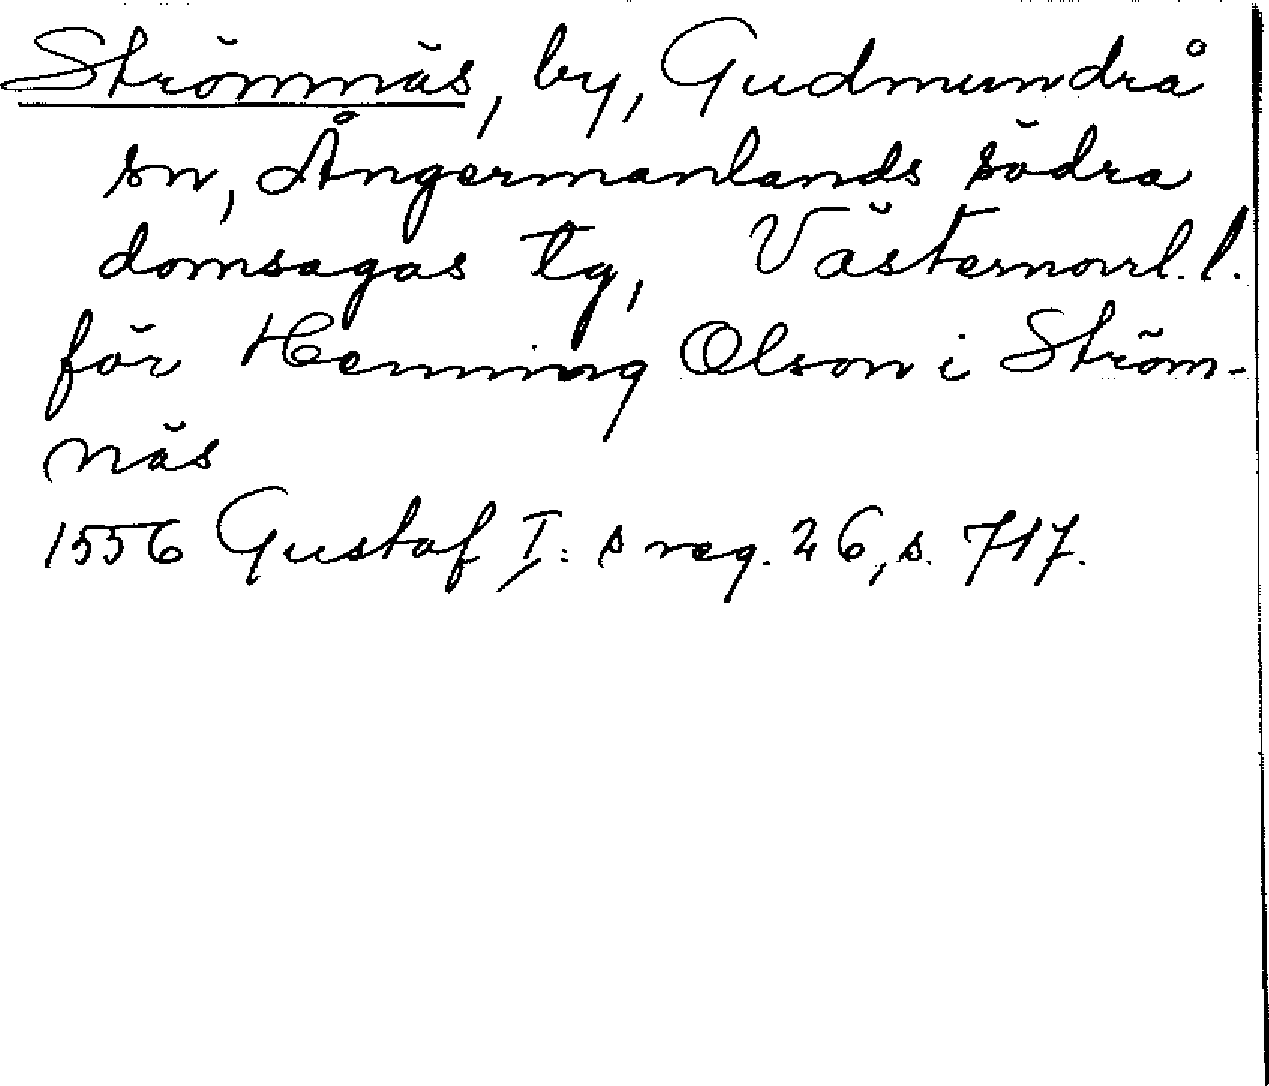 Strömnäs, by, Gudmundrå
sn, Ångermanlands södra
domsagas tg, Västernorrl. l.
för Henning Olson i Ström-
näs
1556 Gustaf I: s reg. 26, s. 717.